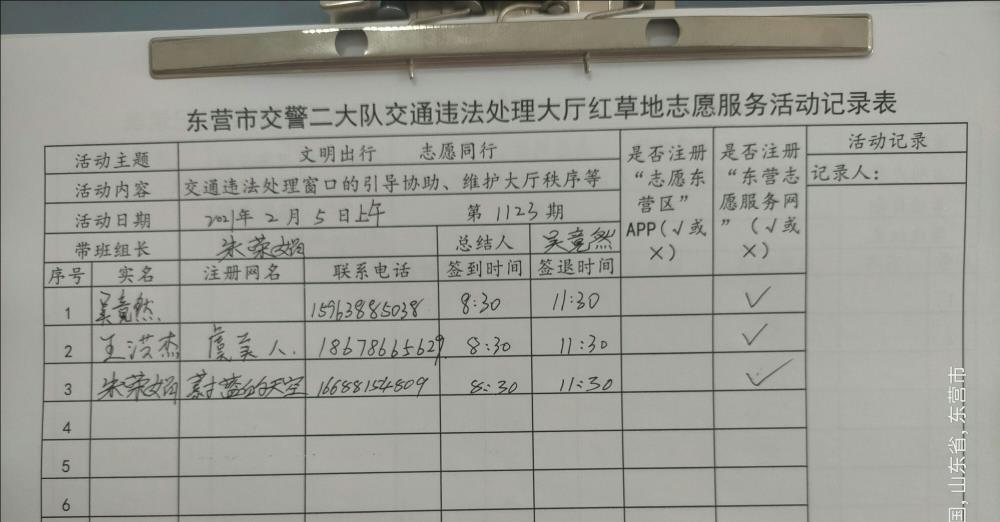 东营市交警二大队交通违法处理大厅红草地志愿服务活动记录表
活动主题 文明出行 志愿同行 是否注册“志愿东营区”APP(√或×) 是否注册“东营志愿服务网”(√或×) 活动记录
活动内容 交通违法处理窗口的引导协助、维护大厅秩序等 记录人:
活动日期 2021年2月5日上午 第1123期
带班组长 朱荣娟 总结人 吴竟然
序号 实名 注册网名 联系电话 签到时间 签退时间
1 吴竟然 15963885038 8:30 11:30 √
2 王洪杰 虞美人. 18678665629 8:30 11:30 √
3 朱荣娟 蔚蓝的天空 16688154809 8:30 11:30 √
4
5
6
国,山东省,东营市